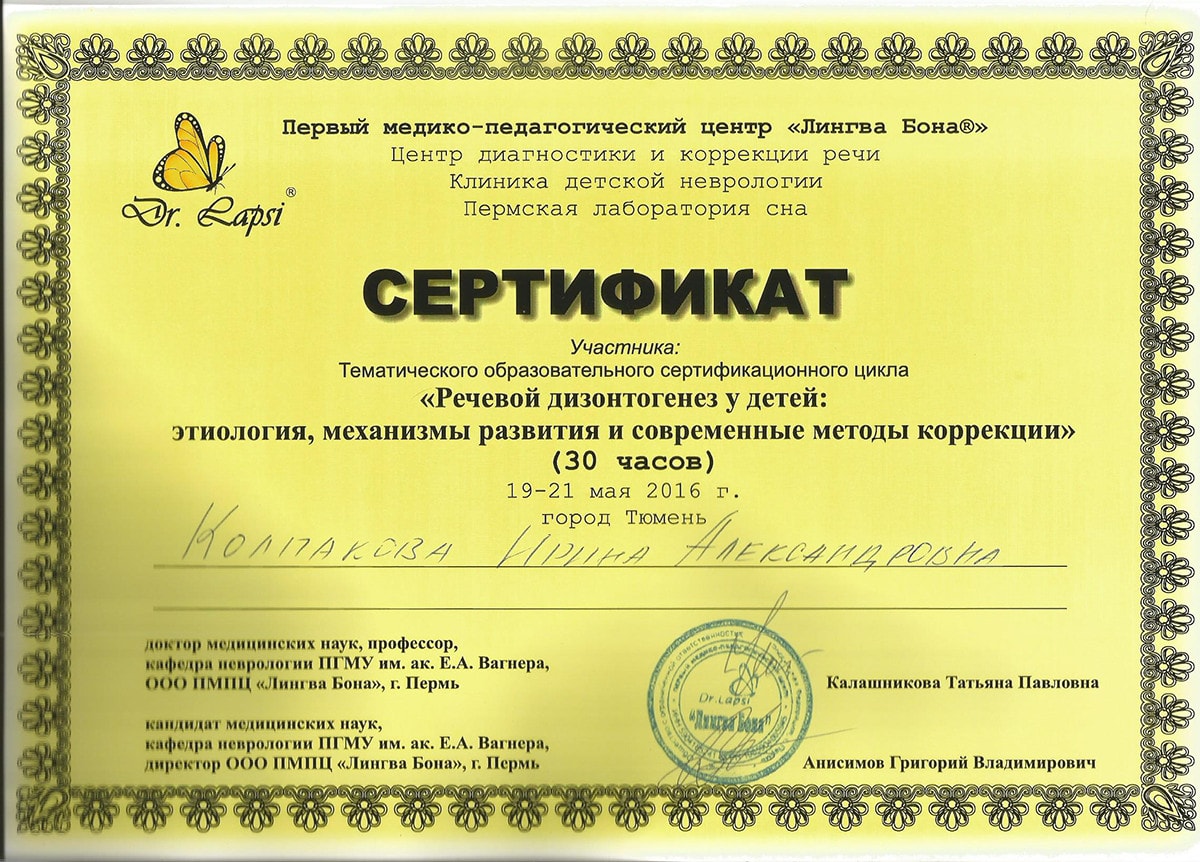 Первый медико-педагогический центр «Лингва Бона®»
Центр диагностики и коррекции речи
Клиника детской неврологии
Пермская лаборатория сна
Dr. Lapsi ®
СЕРТИФИКАТ
Участника:
Тематического образовательного сертификационного цикла
«Речевой дизонтогенез у детей:
этиология, механизмы развития и современные методы коррекции»
(30 часов)
19-21 мая 2016 г.
город Тюмень
Колпакова Ирина Александровна
доктор медицинских наук, профессор,
кафедра неврологии ПГМУ им. ак. Е.А. Вагнера,
ООО ПМПЦ «Лингва Бона», г. Пермь
Калашникова Татьяна Павловна
кандидат медицинских наук,
кафедра неврологии ПГМУ им. ак. Е.А. Вагнера,
директор ООО ПМПЦ «Лингва Бона», г. Пермь
Анисимов Григорий Владимирович
Dr.Lapsi
"Лингва Бона"